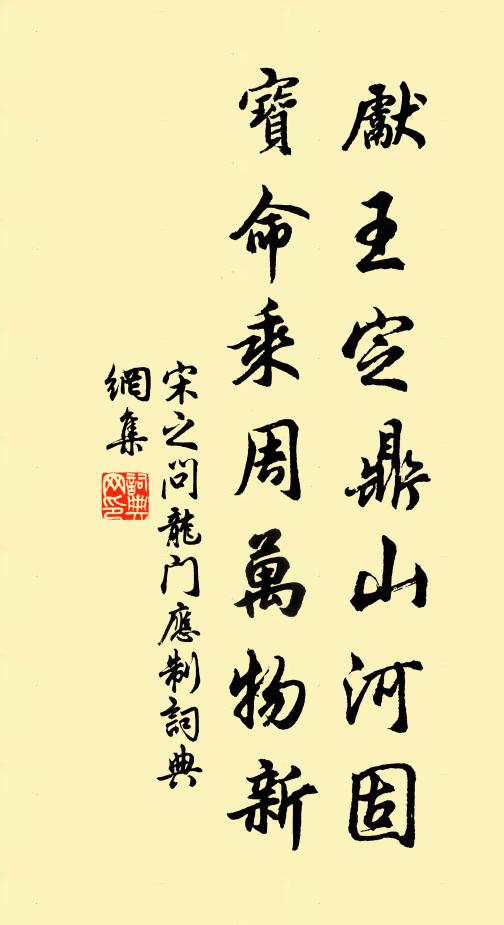 獻王定鼎山河固
寶命乘周萬物新
宋之问龍门應制詞典
網集
詞典
网印